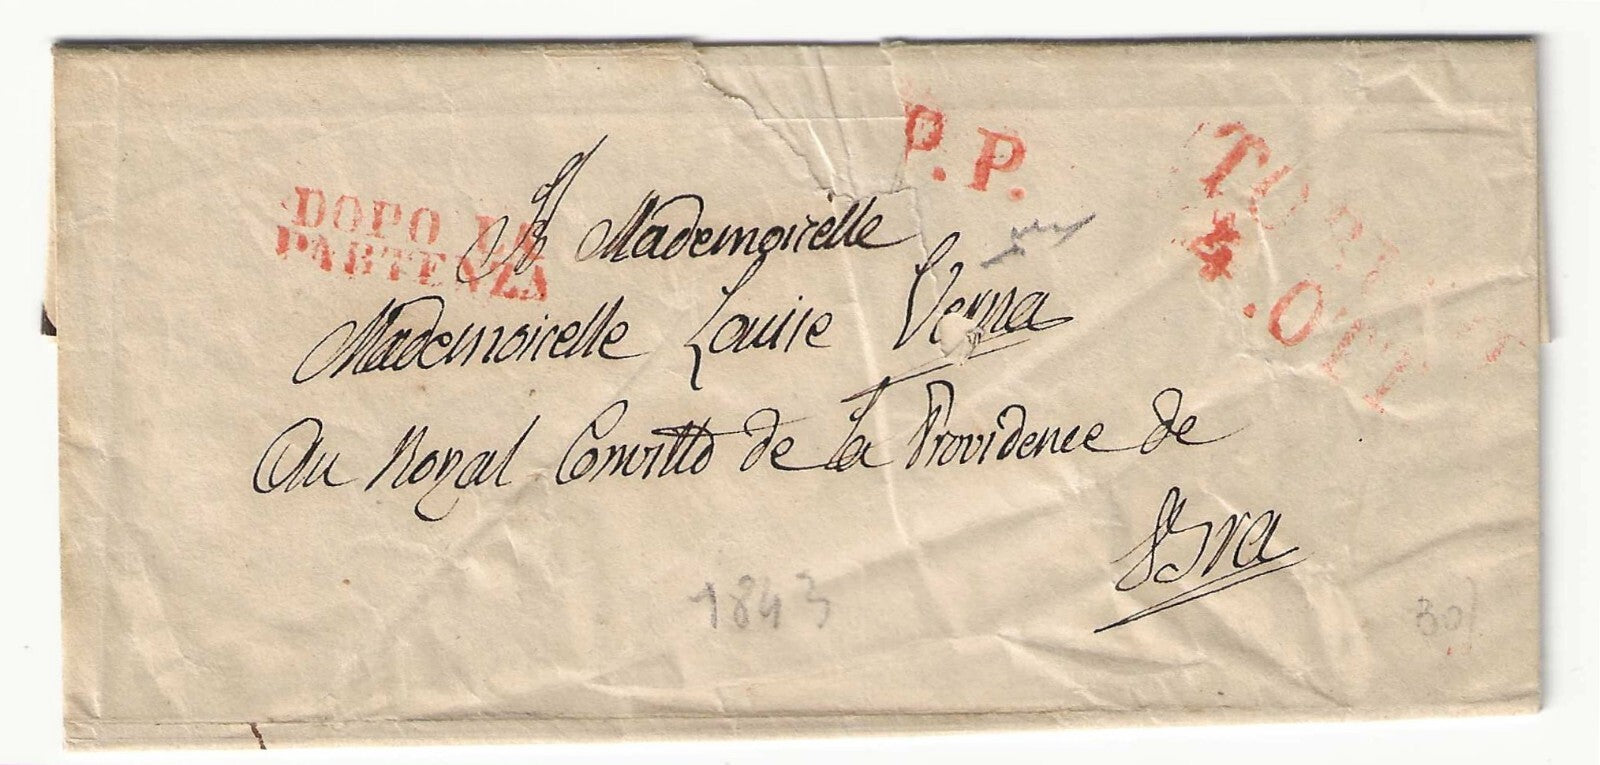 P.P.
TORINO
4. OTT
DOPO LA
PARTENZA
A Mademoiselle
Mademoiselle Louise Verna
Au Royal Convitto de La Providence de
Bra
1843
30/